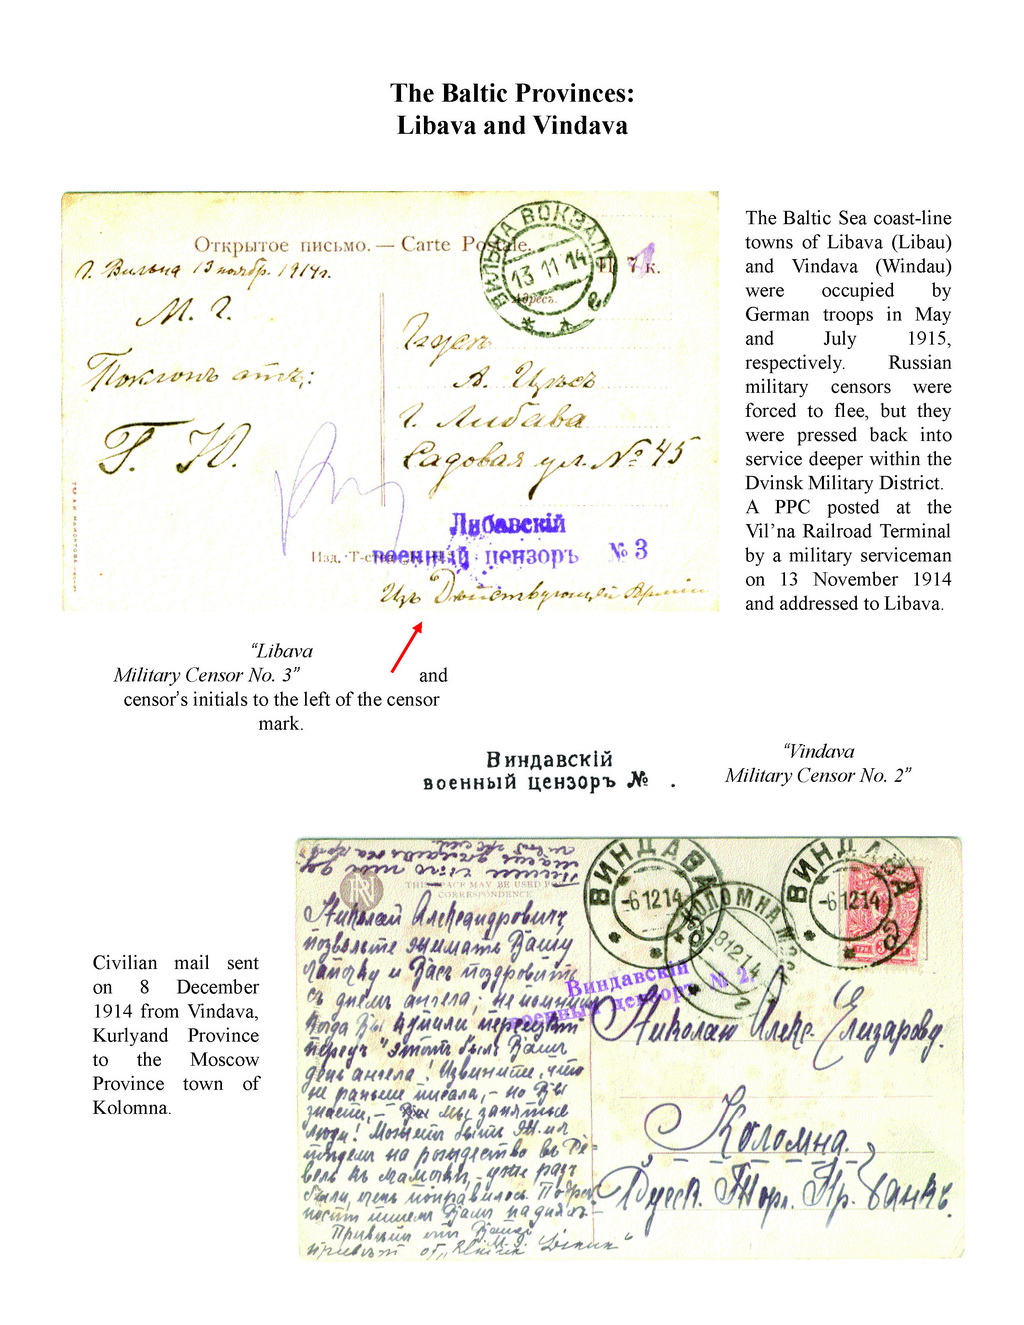 The Baltic Provinces:
Libava and Vindava
Открытое письмо. — Carte Postale.
ВИЛЬНА ВОКЗАЛЪ
13 11 14
г. Вильна 13 ноябр. 1914 г.
7 к.
Адресъ.
М. Г.
Поклонъ отъ:
Г. Ю.
г. Либава
Садовая ул. № 45
Либавскій
военный цензоръ № 3
Изд. Т-
Изъ Действующей Арміи
The Baltic Sea coast-line
towns of Libava (Libau)
and Vindava (Windau)
were occupied by
German troops in May
and July 1915,
respectively. Russian
military censors were
forced to flee, but they
were pressed back into
service deeper within the
Dvinsk Military District.
A PPC posted at the
Vil’na Railroad Terminal
by a military serviceman
on 13 November 1914
and addressed to Libava.
“Libava
Military Censor No. 3” and
censor’s initials to the left of the censor
mark.
Виндавскій
военный цензоръ № .
“Vindava
Military Censor No. 2”
Civilian mail sent
on 8 December
1914 from Vindava,
Kurlyand Province
to the Moscow
Province town of
Kolomna.
THIS SPACE MAY BE USED FOR
CORRESPONDENCE
ВИНДАВА
-6 12 14
КОЛОМНА МОСК
8 12 14
ВИНДАВА
-6 12 14
Виндавскій
военный цензоръ № 2.
Николай Александровичъ,
позвольте
и Васъ поздровить
съ днемъ ангела; не помню
когда Вы купили
передъ "этотъ былъ Вашъ
день ангела! Извините, что
не раньше писала, - но Вы
знаете, - мы занятые
люди! Можетъ быть
на рождество въ Ре-
вель къ мамочкѣ, - уже разъ
были, очень понравилось.
Привѣтъ отъ
привѣтъ отъ
Николаю Алекс. Елизарову.
Коломна.
Русск. Торг. Пр. Банкъ.